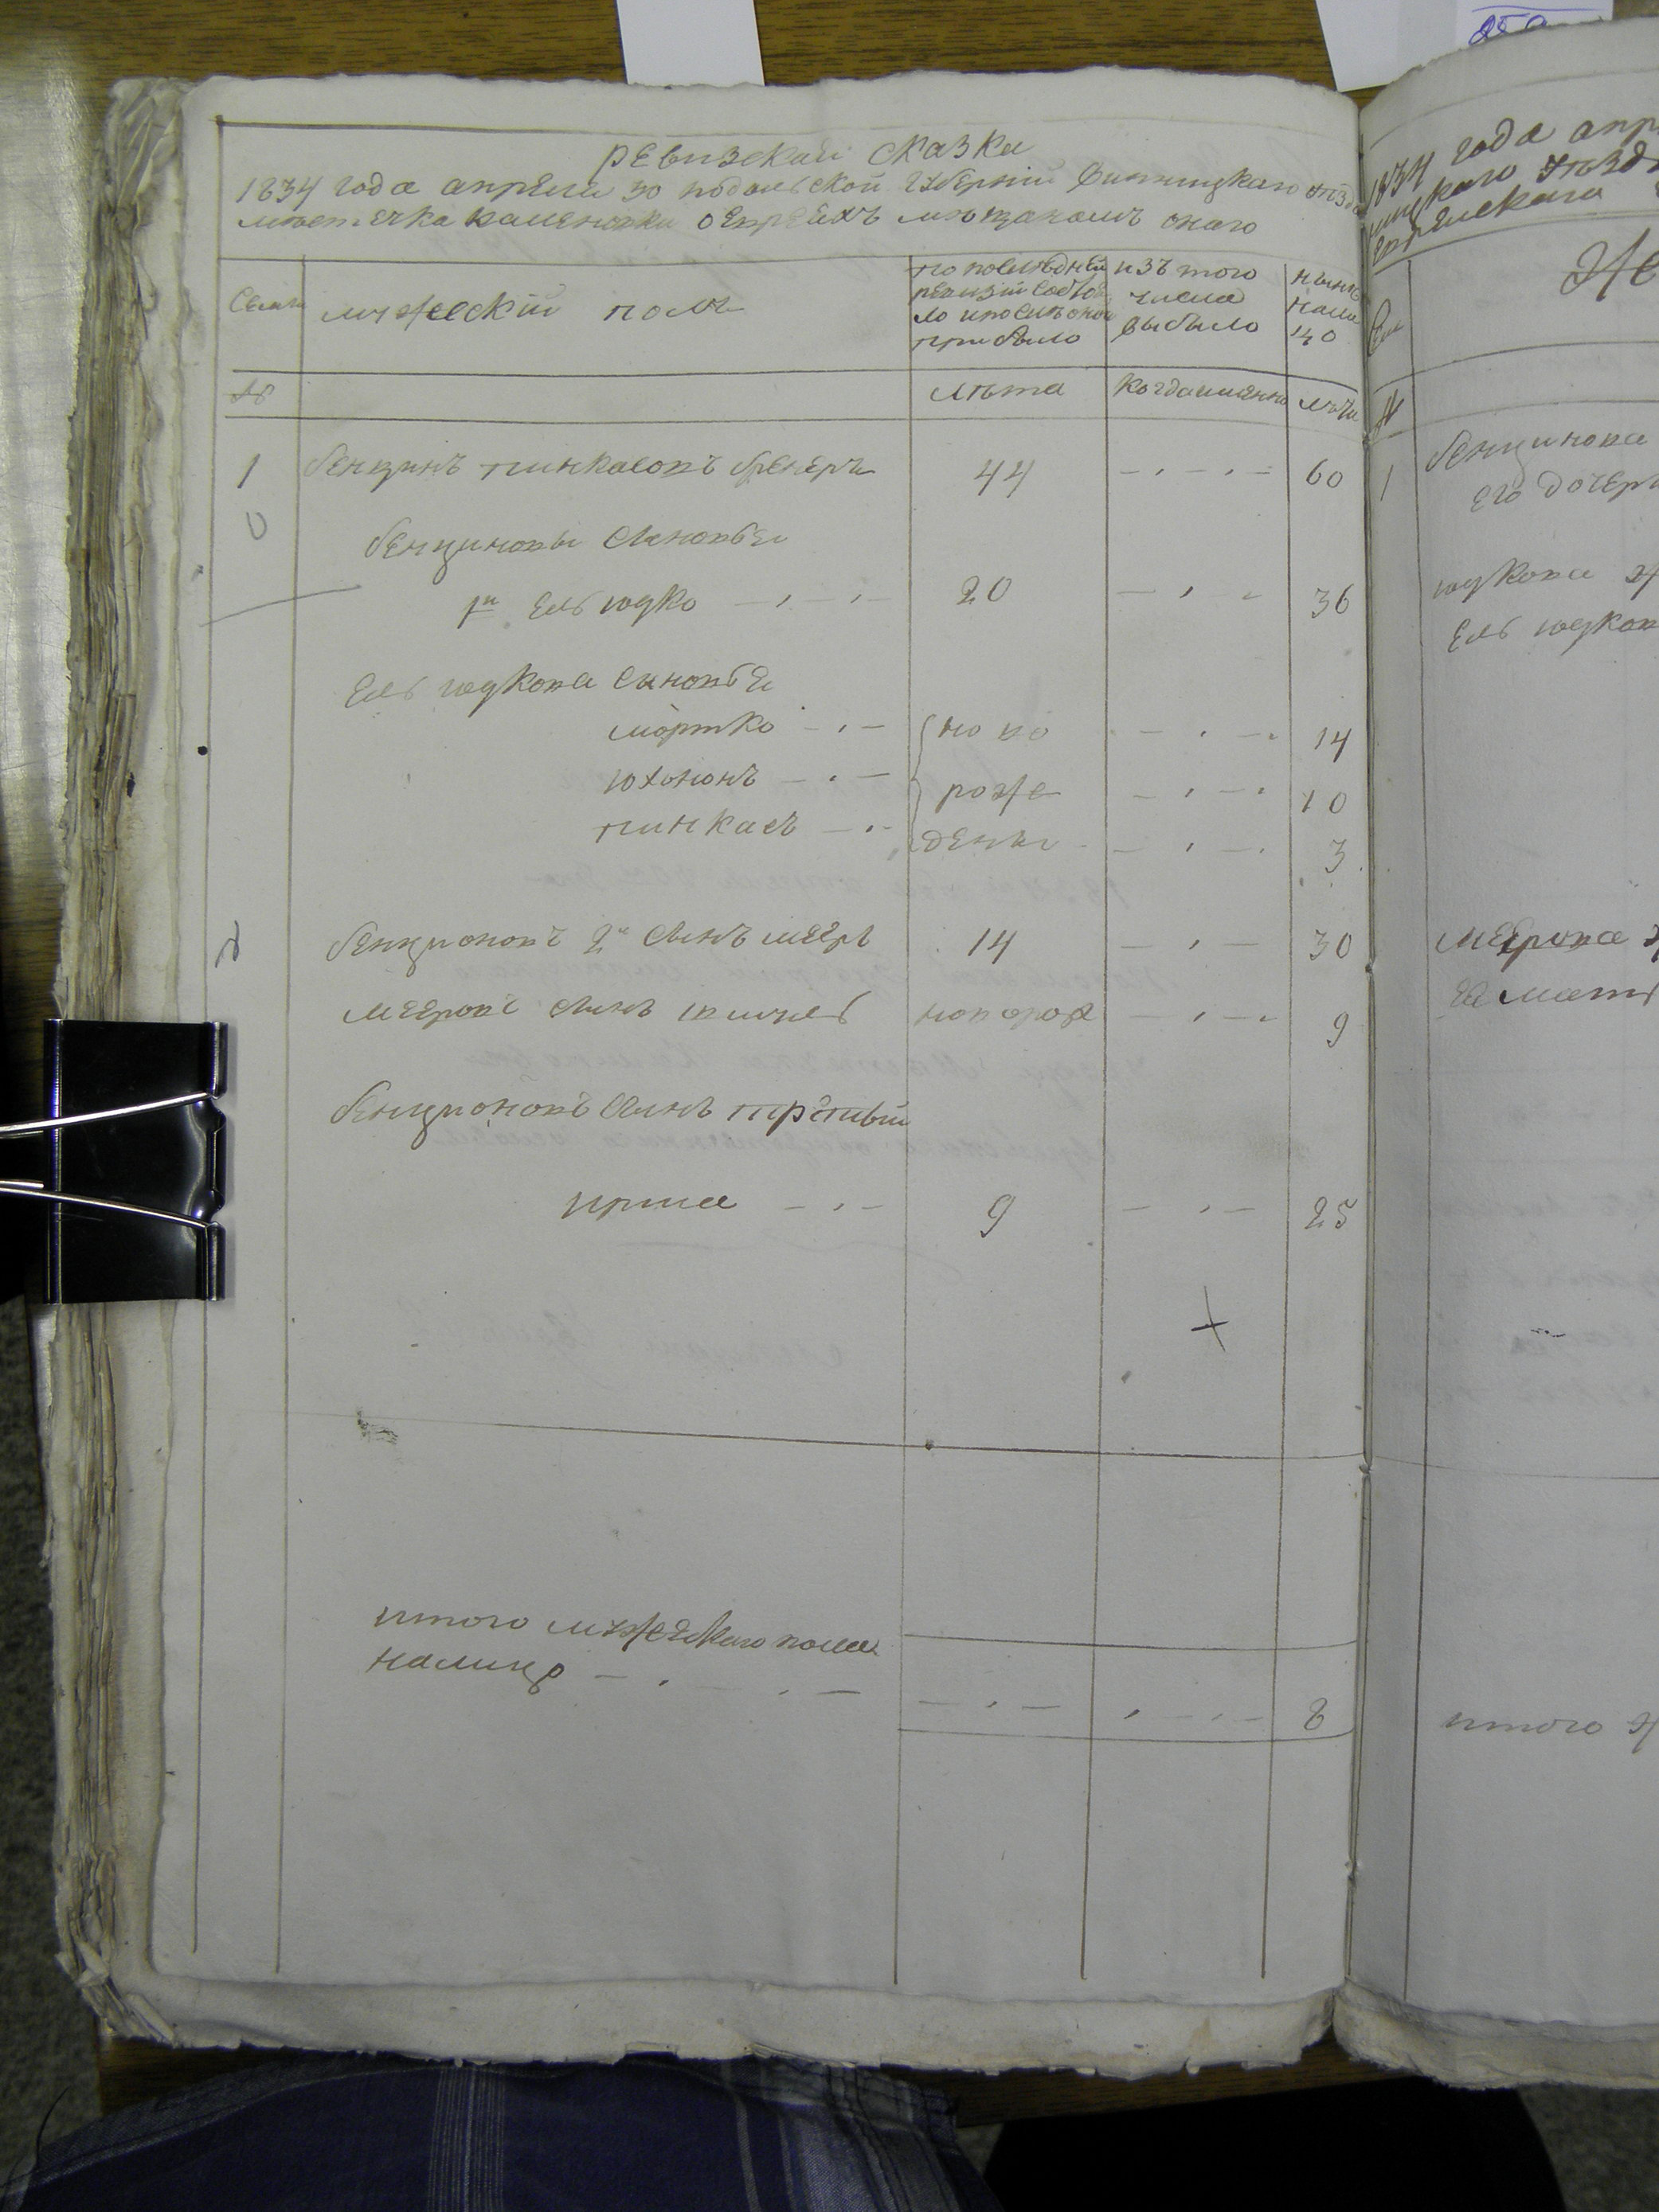 Ревизская сказка
1834 года апреля 30 подольской губернии Винницкаго уезда
местечка Каменовки оевреяхъ мещанамъ онаго
Семьи
мужеский полъ
по последней
ревизии состоя
ло и после оной
прибыло
изъ того
числа
выбыло
ныне
нали
цо
№
лета
когда имянно
лета
1
бенцинъ пинкасовъ бренеръ
44
60
бенциновы сыновья
1й Ель юдко
20
36
Ель юдкова сыновья
мортко
ново
14
юхононъ
рожє
10
пинкасъ
дены
3
бенционовъ 2й сынъ мееръ
14
30
мееровъ сынъ
новорож
9
бенционовъ сынъ третый
9
25
итого мужескаго пола
налицо
8
1834 года апр
года
Же
№
1
бенцинова
его дочери
юдкова ж
Ель юдков
меерова ж
ея мать
итого ж